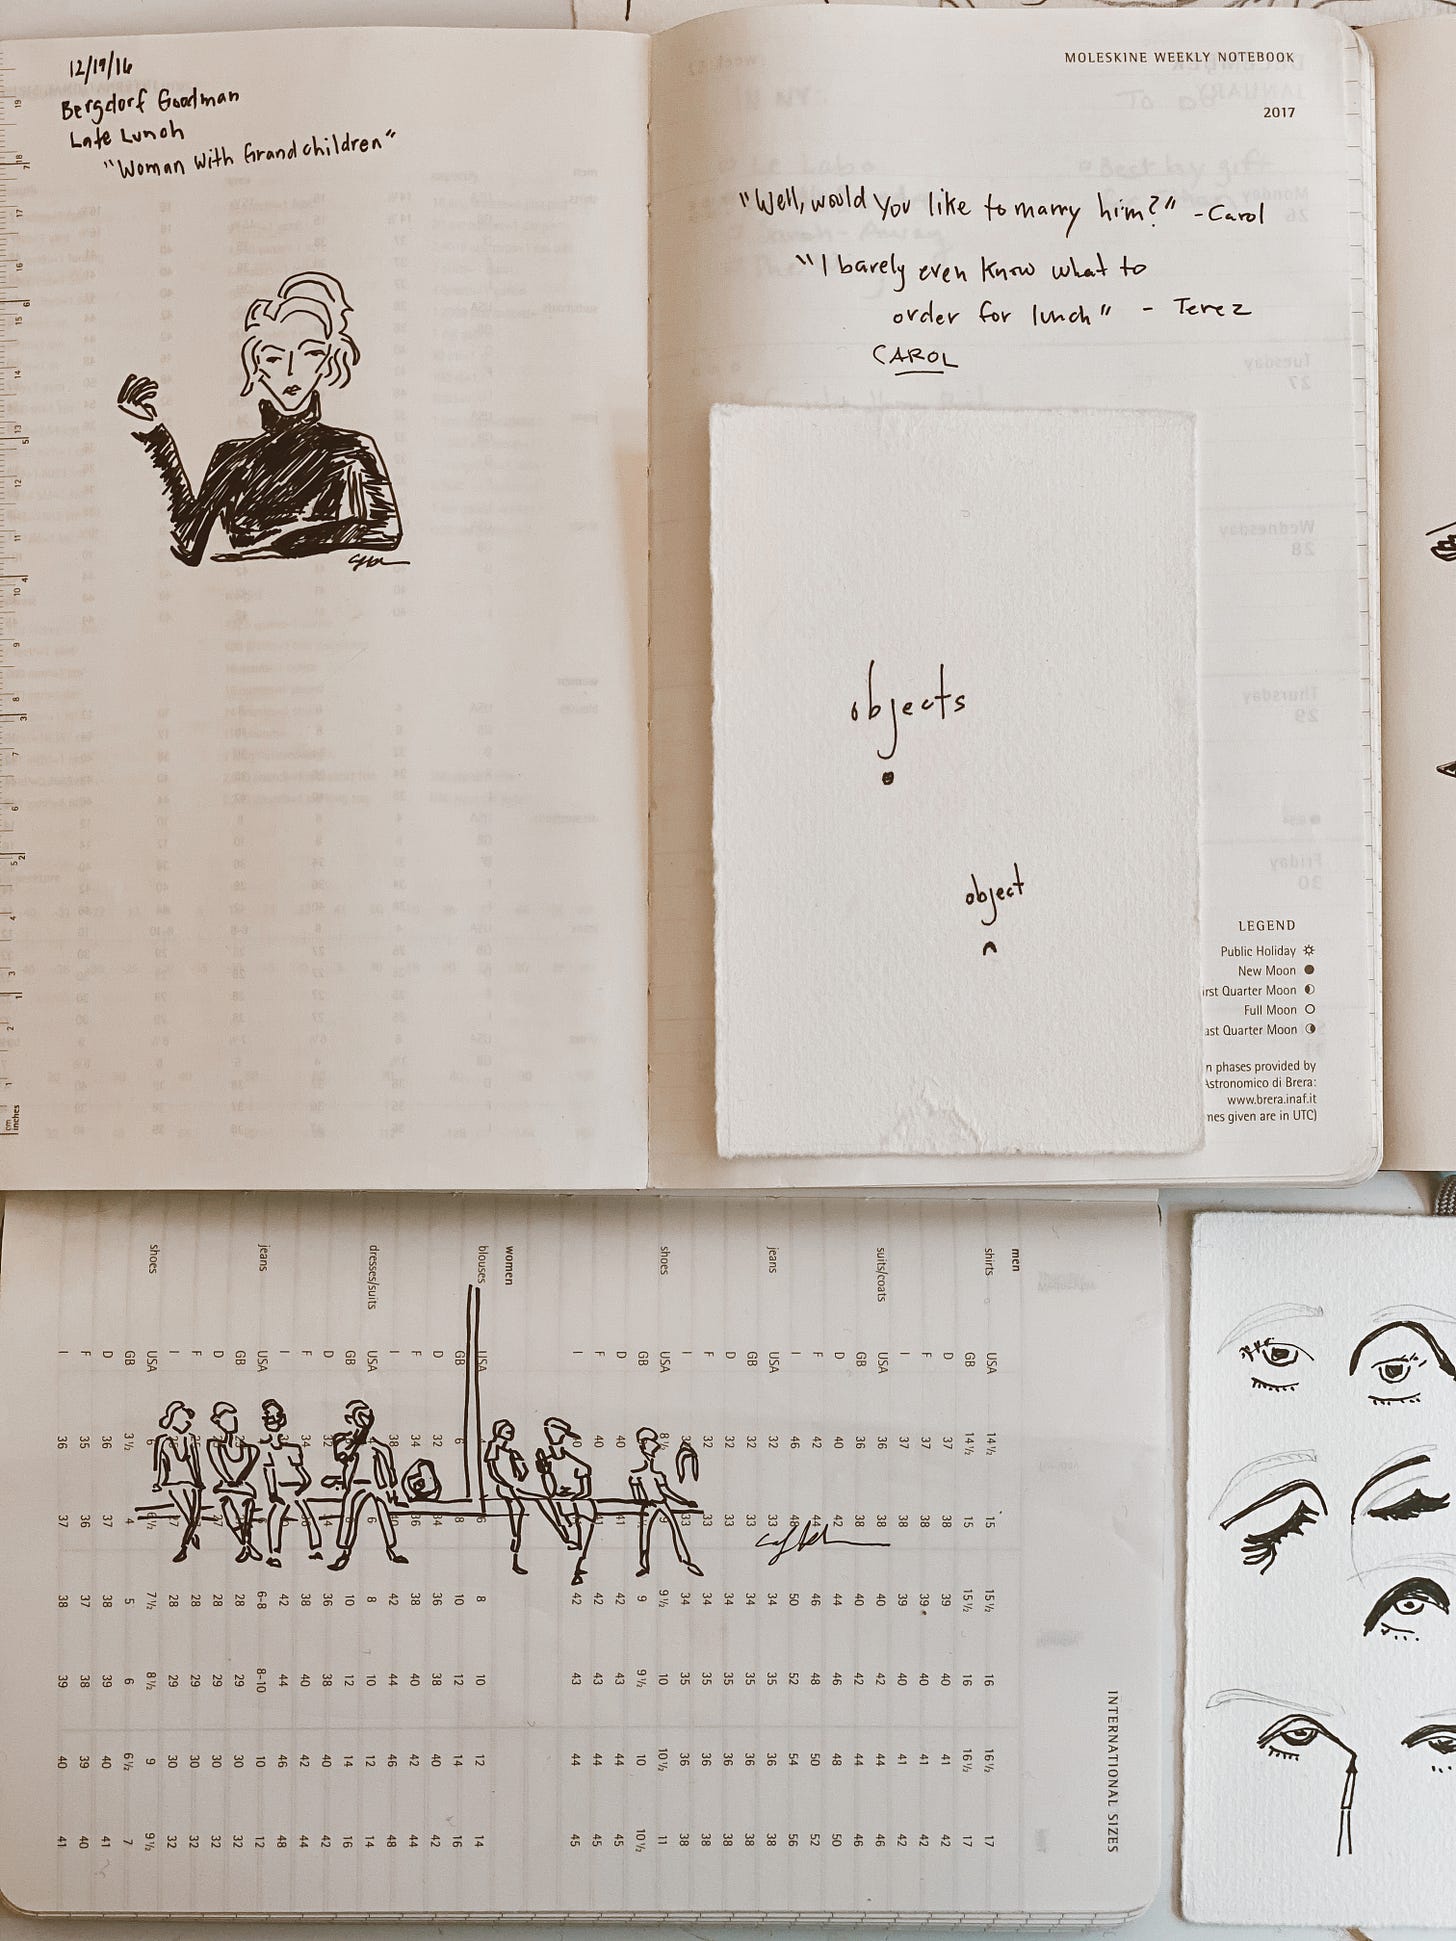 12/19/16
Bergdorf Goodman
Late Lunch
"Woman with Grandchildren"
MOLESKINE WEEKLY NOTEBOOK
2017
"Well, would you like to marry him?" -Carol
"I barely even know what to
order for lunch" - Terez
CAROL
objects
object
LEGEND
Public Holiday
New Moon
rst Quarter Moon
Full Moon
ast Quarter Moon
n phases provided by
Astronomico di Brera:
www.brera.inaf.it
mes given are in UTC)
cm
inches
INTERNATIONAL SIZES
men
shirts USA 14½ 15 15½ 16 16½ 17
GB 14½ 15 15½ 16 16½ 17
D 37 38 39 40 41 42
F 37 38 39 40 41 42
I 37 38 39 40 41 42
suits/coats USA 36 38 40 42 44 46
GB 36 38 40 42 44 46
D 40 42 44 46 48 50
F 42 44 46 48 50 52
I 46 48 50 52 54 56
jeans USA 32 33 34 35 36 38
GB 32 33 34 35 36 38
D 32 33 34 35 36 38
F 32 33 34 35 36 38
I 33 34 35 36 38
shoes USA 8½ 9 9½ 10 10½ 11
GB 9 9½ 10 10½
D 40 41 42 43 44 45
F 40 42 43 44 45
I 42 43 44 45
women
blouses USA 6 8 10 12 14
GB 6 8 10 12 14 16
D 32 34 36 38 40 42
F 34 36 38 40 42 44
I 38 40 42 44 46 48
dresses/suits USA 6 8 10 12 14
GB 10 12 14 16
D 32 34 36 38 40 42
F 34 38 40 42 44
I 42 44 46 48
jeans USA 6-8 8-10 10 12
GB 28 29 30 32
D 27 28 29 30 32
F 28 29 30 32
I 27 28 29 30 32
shoes USA 6 6½ 7½ 8½ 9 9½
GB 3½ 4 5 6 6½ 7
D 36 37 38 39 40 41
F 35 36 37 38 39 40
I 36 37 38 39 40 41